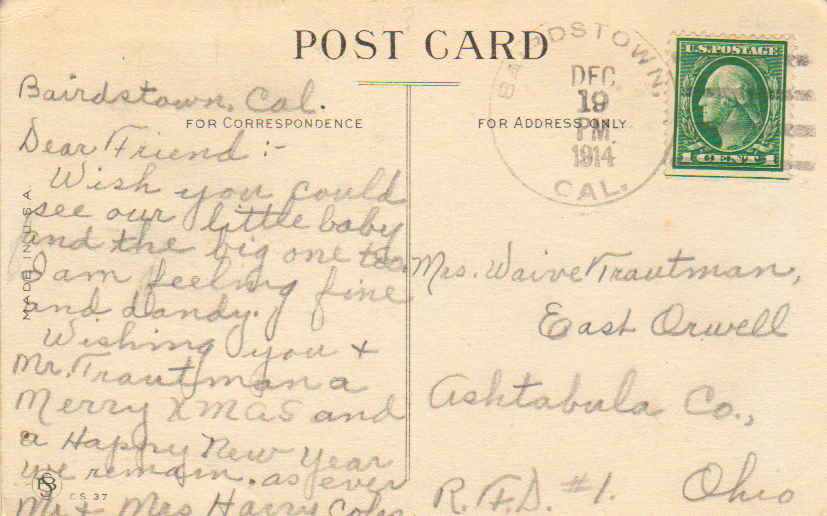 POST CARD
FOR CORRESPONDENCE
FOR ADDRESS ONLY
BAIRDSTOWN,
DEC
19
PM
1914
CAL.
U.S. POSTAGE
1 CENT 1
Bairdstown, Cal.
Dear Friend :-
Wish you could
see our little baby
and the big one too.
I am feeling fine
and dandy.
Wishing you +
Mr. Trautman a
Merry XMAS and
a Happy New Year
we remain. as ever
Mr + Mrs Harry Coles
Mrs. Waive Trautman,
East Orwell
Ashtabula Co.,
R.F.D. #1. Ohio
MADE IN U.S.A.
CS 37